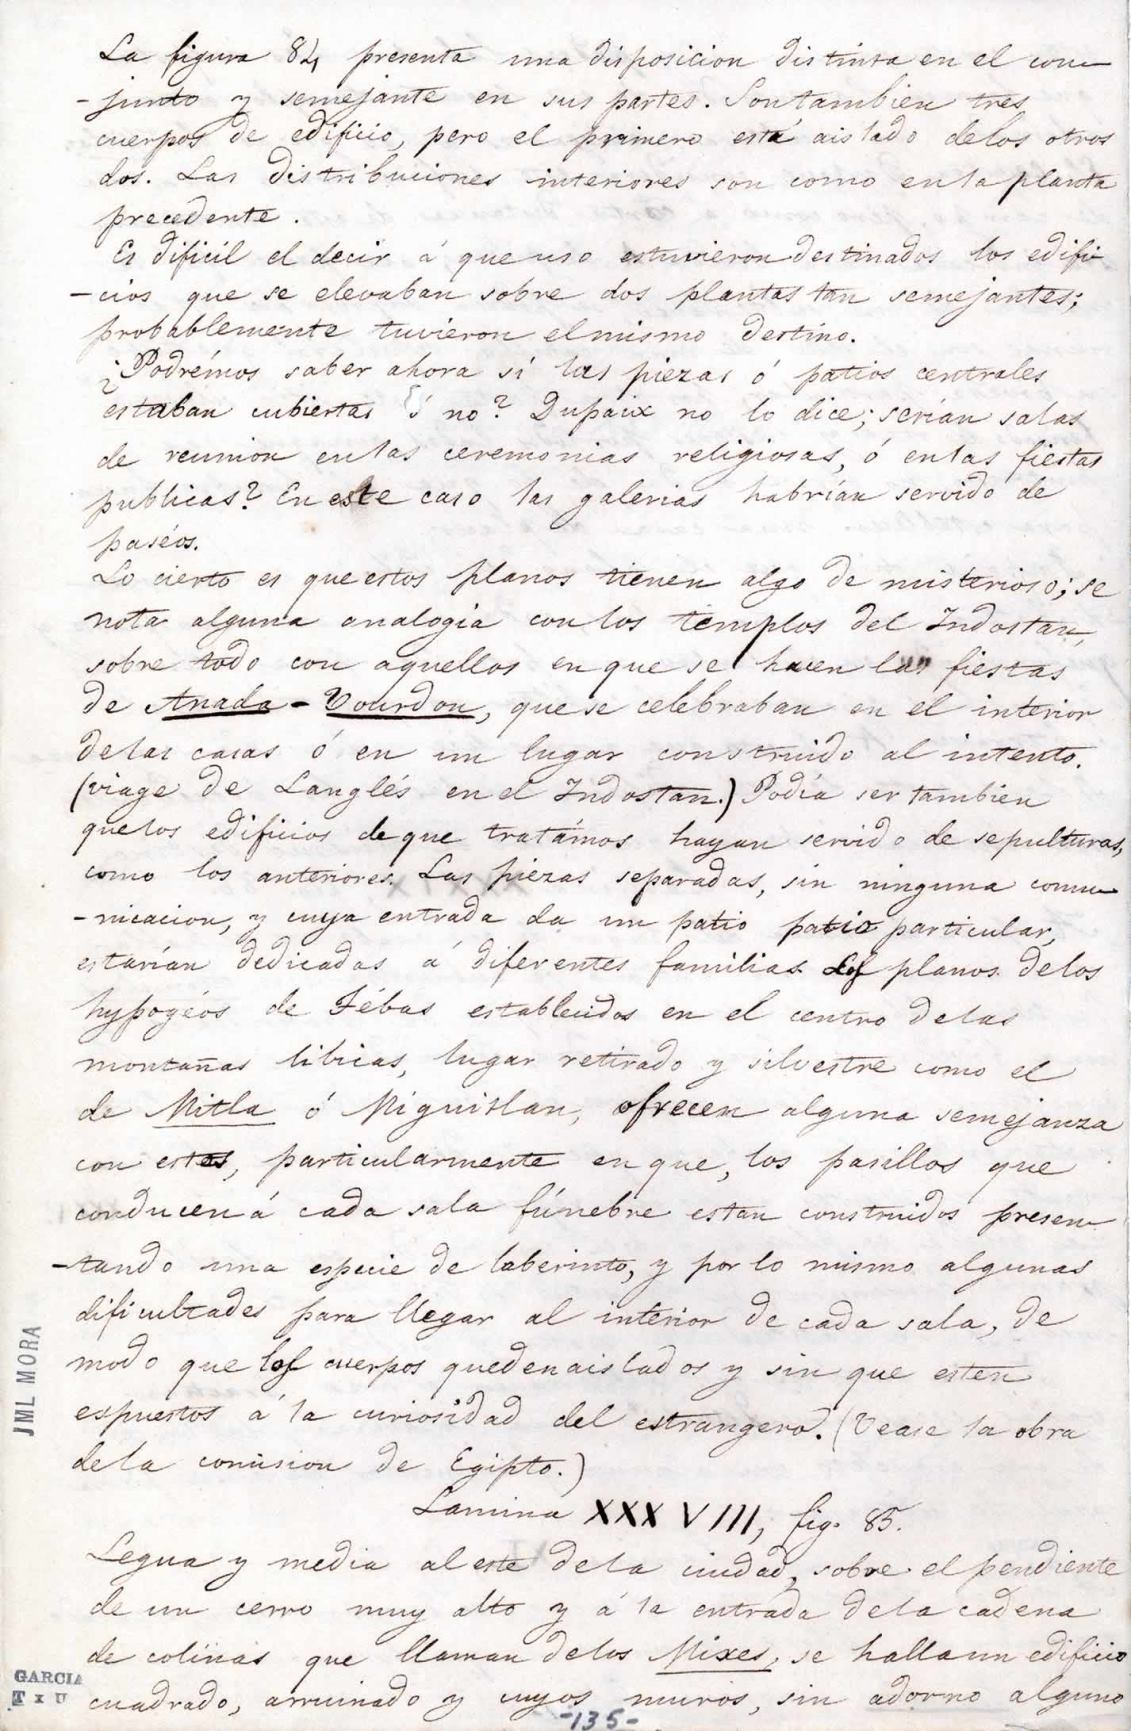 La figura 84 presenta una disposicion distinta en el con-
-junto y semejante en sus partes. Son tambien tres
cuerpos de edificio, pero el primero está aislado delos otros
dos. Las distribuciones interiores son como en la planta
precedente.
Es dificil el decir á que uso estuvieron destinados los edifi-
-cios que se elevaban sobre dos plantas tan semejantes;
probablemente tuvieron el mismo destino.
¿Podrémos saber ahora si las piezas ó patios centrales
estaban cubiertas ó no? Dupaix no lo dice; serían salas
de reunion en las ceremonias religiosas, ó en las fiestas
publicas? En este caso las galerias habrían servido de
paséos.
Lo cierto es que estos planos tienen algo de misterioso; se
nota alguna analogia con los templos del Indostan,
sobre todo con aquellos en que se hacen las fiestas
de Anada-Vourdon, que se celebraban en el interior
delas casas ó en un lugar construido al intento.
(viage de Langlés en el Indostan.) Podía ser tambien
que los edificios de que tratámos hayan servido de sepulturas,
como los anteriores. Las piezas separadas, sin ninguna comu-
-nicacion, y cuya entrada da un patio patio particular,
estarían dedicadas á diferentes familias. Los planos delos
hypogéos de Tébas establecidos en el centro delas
montañas libicas, lugar retirado y silvestre como el
de Mitla ó Miguitlan, ofrecen alguna semejanza
con estos, particularmente en que, los pasillos que
conducen á cada sala fúnebre estan construidos presen-
-tando una especie de laberinto, y por lo mismo algunas
dificultades para llegar al interior de cada sala, de
modo que los cuerpos queden aislados y sin que esten
espuestos á la curiosidad del estrangero. (Vease la obra
dela comision de Egipto.)
Lamina XXXVIII, fig. 85.
Legua y media al este dela ciudad, sobre el pendiente
de un cerro muy alto y á la entrada dela cadena
de colinas que llaman delos Mixes, se halla un edificio
cuadrado, arruinado y cuyos muros, sin adorno alguno
-135-
JML MORA
GARCIA